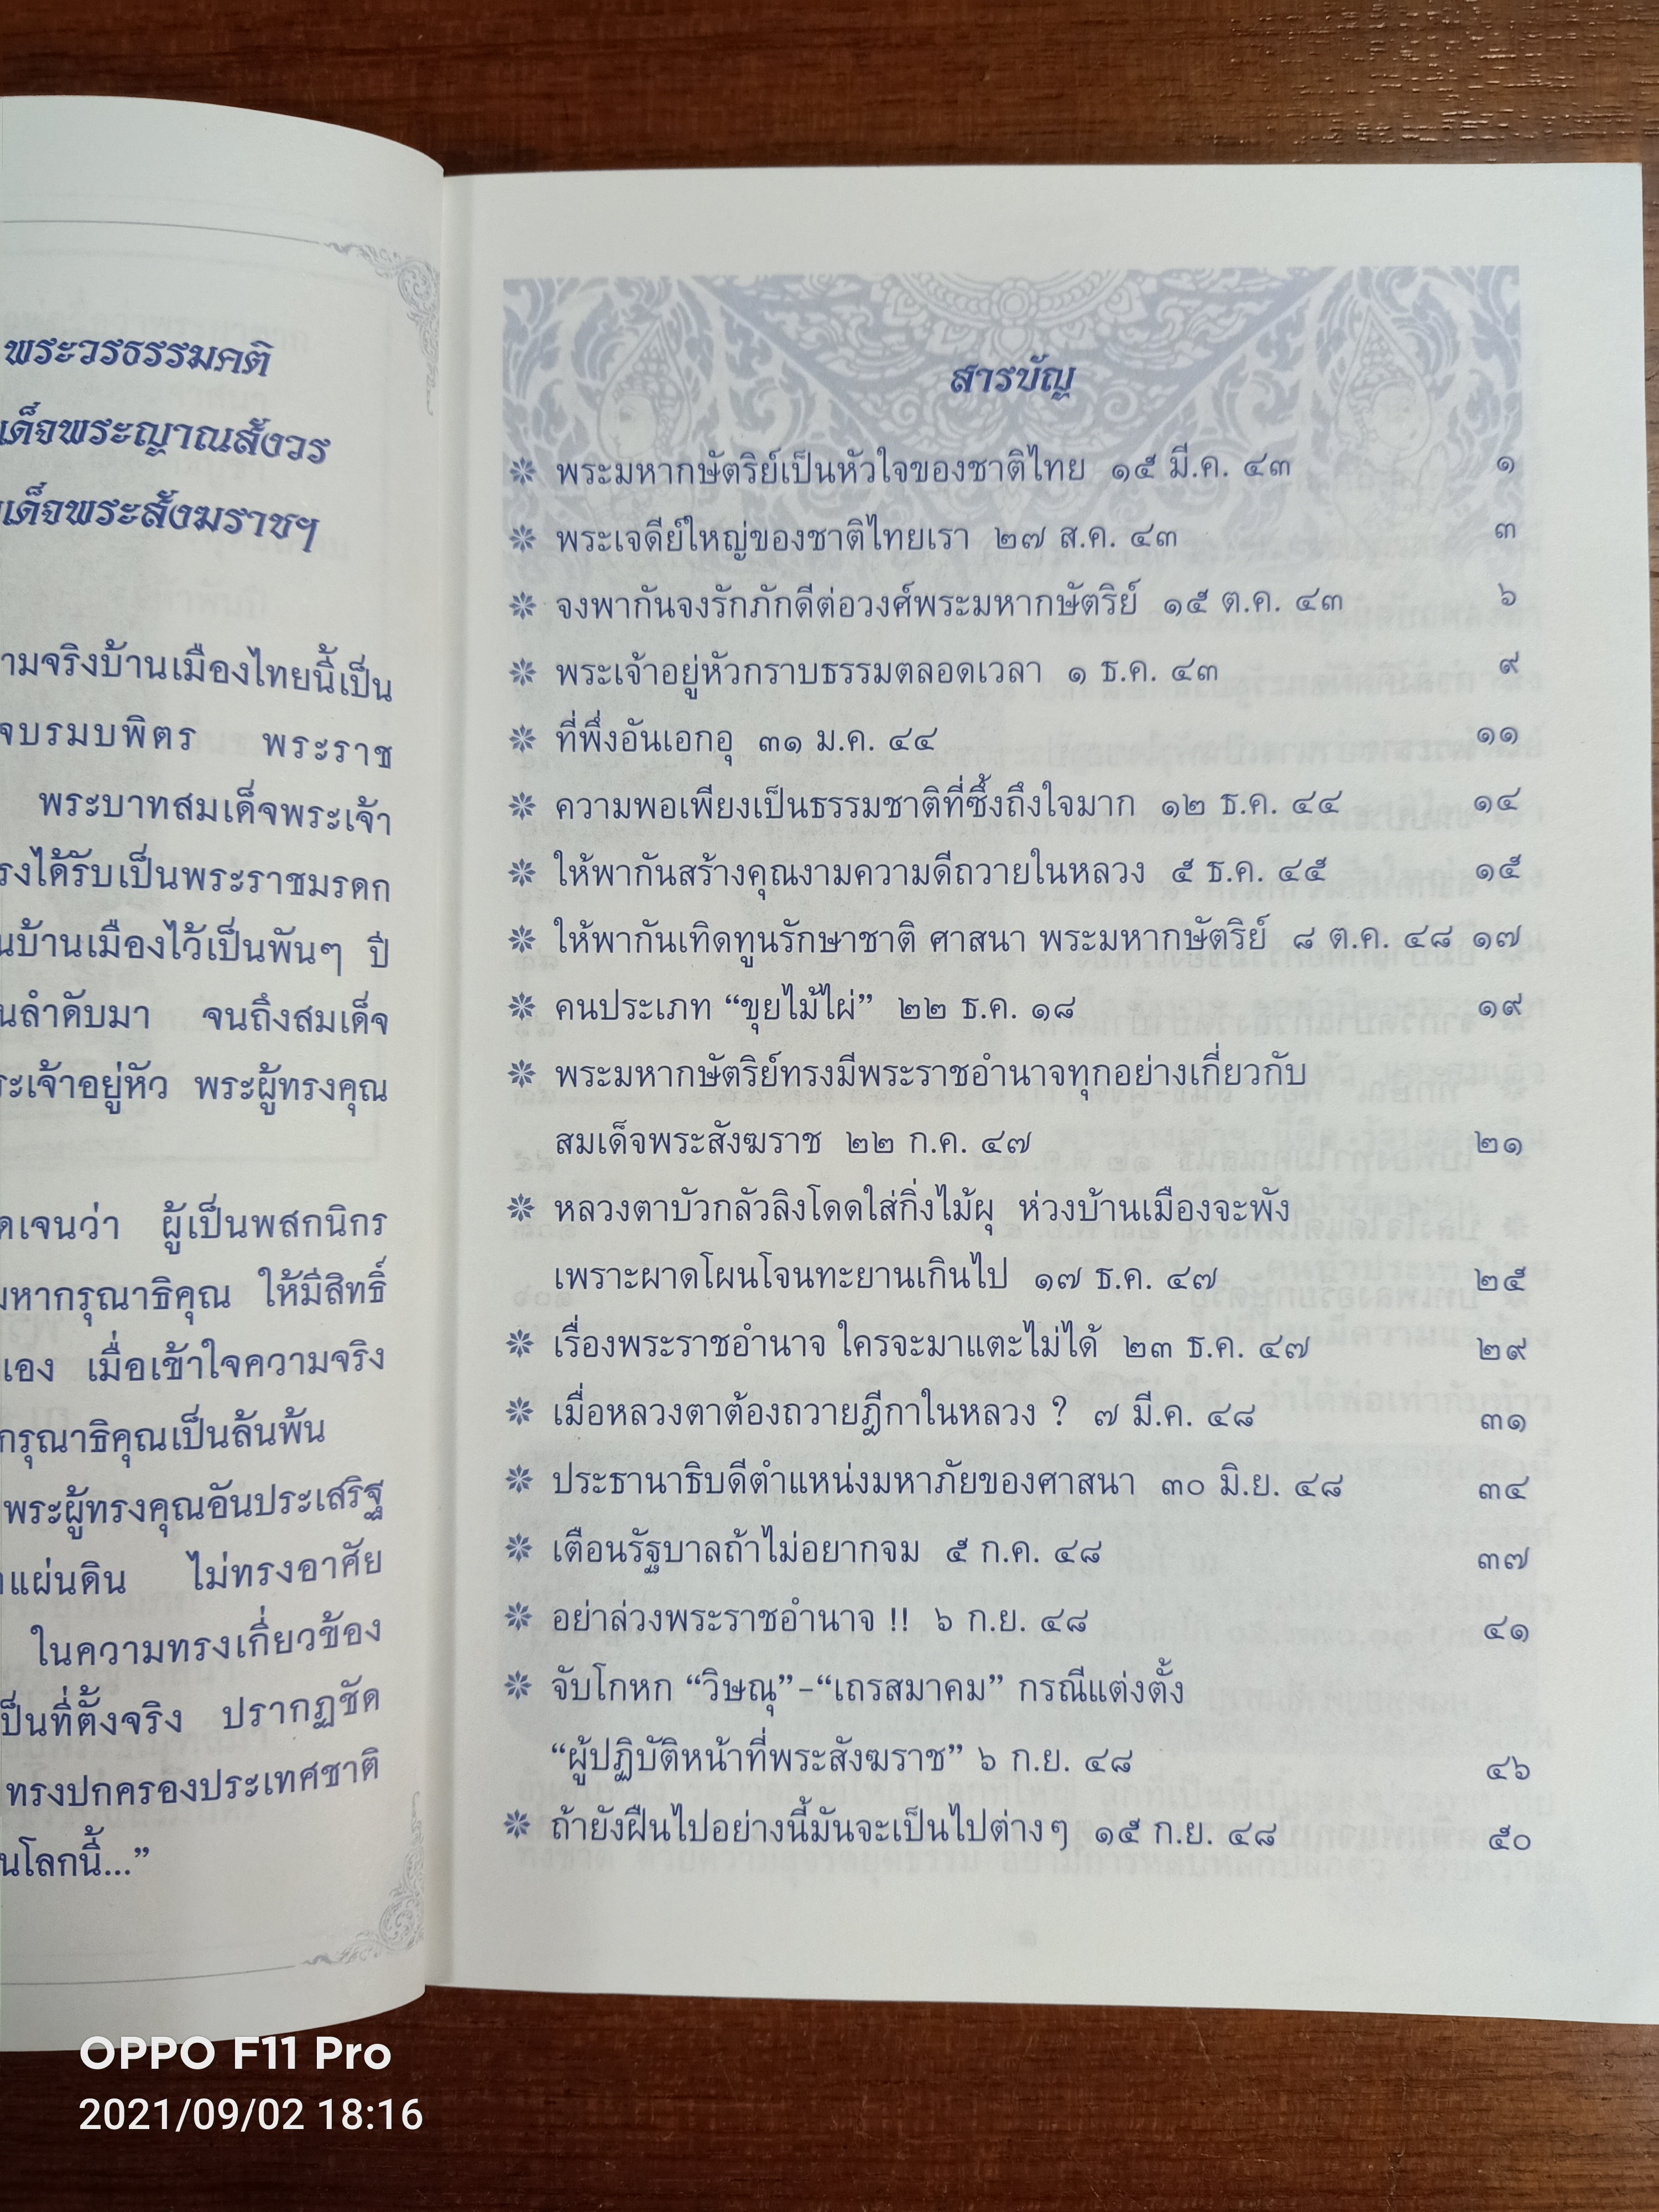 พระวรธรรมคติ
เด็จพระญาณสังวร
เด็จพระสังฆราชฯ
ามจริงบ้านเมืองไทยนี้เป็น
จบรมบพิตร พระราช
พระบาทสมเด็จพระเจ้า
รงได้รับเป็นพระราชมรดก
นบ้านเมืองไว้เป็นพันๆ ปี
นลำดับมา จนถึงสมเด็จ
ระเจ้าอยู่หัว พระผู้ทรงคุณ
ดเจนว่า ผู้เป็นพสกนิกร
มหากรุณาธิคุณ ให้มีสิทธิ์
เอง เมื่อเข้าใจความจริง
กรุณาธิคุณเป็นล้นพ้น
พระผู้ทรงคุณอันประเสริฐ
าแผ่นดิน ไม่ทรงอาศัย
ในความทรงเกี่ยวข้อง
ป็นที่ตั้งจริง ปรากฏชัด
ทรงปกครองประเทศชาติ
นโลกนี้...”
สารบัญ
❋ พระมหากษัตริย์เป็นหัวใจของชาติไทย ๑๕ มี.ค. ๔๓ ๑
❋ พระเจดีย์ใหญ่ของชาติไทยเรา ๒๗ ส.ค. ๔๓ ๓
❋ จงพากันจงรักภักดีต่อวงศ์พระมหากษัตริย์ ๑๕ ต.ค. ๔๓ ๖
❋ พระเจ้าอยู่หัวกราบธรรมตลอดเวลา ๑ ธ.ค. ๔๓ ๙
❋ ที่พึ่งอันเอกอุ ๓๑ ม.ค. ๔๔ ๑๑
❋ ความพอเพียงเป็นธรรมชาติที่ซึ้งถึงใจมาก ๑๒ ธ.ค. ๔๔ ๑๔
❋ ให้พากันสร้างคุณงามความดีถวายในหลวง ๕ ธ.ค. ๔๕ ๑๕
❋ ให้พากันเทิดทูนรักษาชาติ ศาสนา พระมหากษัตริย์ ๘ ต.ค. ๔๘ ๑๗
❋ คนประเภท “ขุยไม้ไผ่” ๒๒ ธ.ค. ๑๘ ๑๙
❋ พระมหากษัตริย์ทรงมีพระราชอำนาจทุกอย่างเกี่ยวกับ
สมเด็จพระสังฆราช ๒๒ ก.ค. ๔๗ ๒๑
❋ หลวงตาบัวกลัวลิงโดดใส่กิ่งไม้ผุ ห่วงบ้านเมืองจะพัง
เพราะผาดโผนโจนทะยานเกินไป ๑๗ ธ.ค. ๔๗ ๒๕
❋ เรื่องพระราชอำนาจ ใครจะมาแตะไม่ได้ ๒๓ ธ.ค. ๔๗ ๒๙
❋ เมื่อหลวงตาต้องถวายฎีกาในหลวง ? ๗ มี.ค. ๔๘ ๓๑
❋ ประธานาธิบดีตำแหน่งมหาภัยของศาสนา ๓๐ มิ.ย. ๔๘ ๓๔
❋ เตือนรัฐบาลถ้าไม่อยากจม ๕ ก.ค. ๔๘ ๓๗
❋ อย่าล่วงพระราชอำนาจ !! ๖ ก.ย. ๔๘ ๔๑
❋ จับโกหก “วิษณุ”-“เถรสมาคม” กรณีแต่งตั้ง
“ผู้ปฏิบัติหน้าที่พระสังฆราช” ๖ ก.ย. ๔๘ ๔๖
❋ ถ้ายังฝืนไปอย่างนี้มันจะเป็นไปต่างๆ ๑๕ ก.ย. ๔๘ ๕๐
OPPO F11 Pro
2021/09/02 18:16